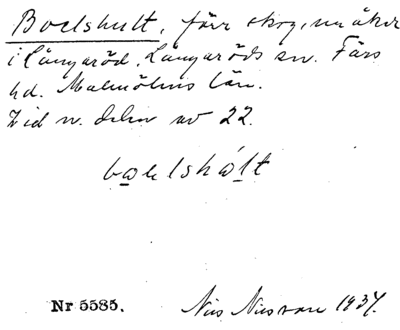 Boelshult, förr skog, nu åker
i Långaröd, Långaröds sn. Färs
hd. Malmöhus län.
Vid n. delen av 22.
Nr 5585. Nils Nilsson 1937.